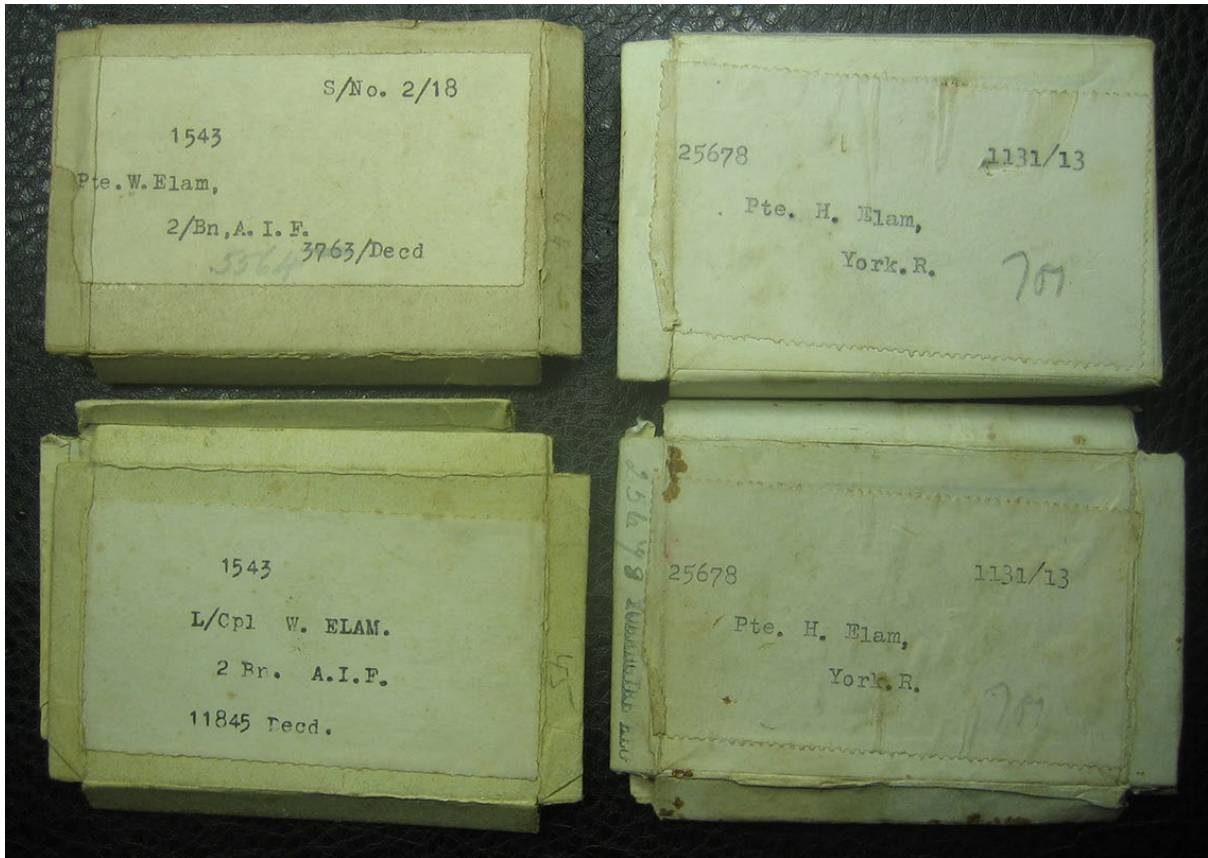 S/No. 2/18
1543
Pte.W.Elam,
2/Bn,A.I.F.
3763/Decd
5564
25678 1131/13
Pte. H. Elam,
York.R.
701
1543
L/Cpl W. ELAM.
2 Bn. A.I.F.
11845 Decd.
45
25678 1131/13
Pte. H. Elam,
York.R.
701